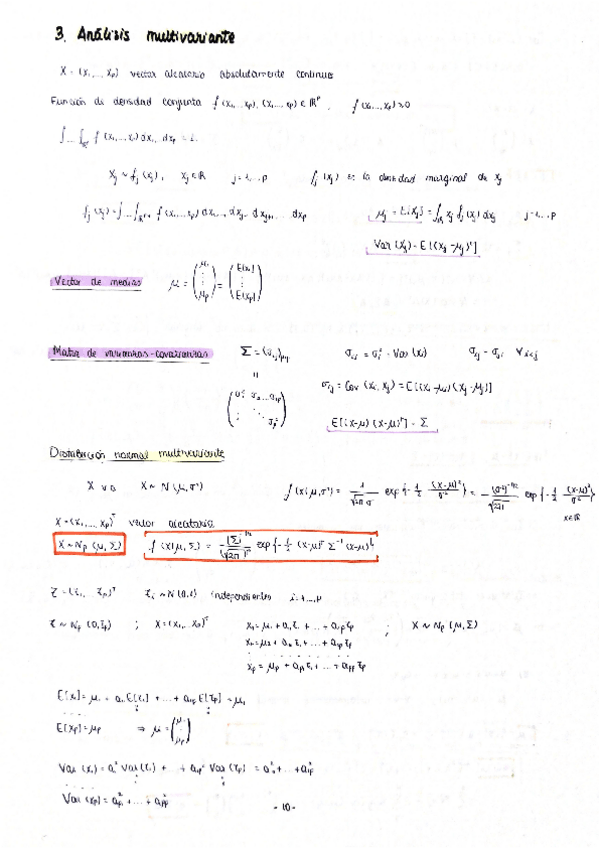 3. Análisis multivariante
X = (X₁,..., Xp) vector aleatorio absolutamente continuo
Función de densidad conjunta f(x₁,..., xp), (x₁,..., xp) ∈ ℝᵖ, f(x₁,..., xp) ≥ 0
∫...∫ f(x₁,..., xp) dx₁...dxp = 1
Xj ~ fj(xj), xj ∈ ℝ j=1,...,p fj(xj) es la densidad marginal de xj
fj(xj) = ∫...∫ f(x₁,..., xp) dx₁... dxj-1 dxj+1... dxp μj = E[Xj] = ∫ xj fj(xj) dxj j=1,...,p
Var(Xj) = E[(Xj - μj)²]
Vector de medias μ = (μ₁ ⋮ μp) = (E[x₁] ⋮ E[xp])
Matriz de varianzas-covarianzas Σ = (σij) σii = σi² = Var(Xi) σij = σji ∀ i≠j
σij = Cov(Xi, Xj) = E[(Xi - μi)(Xj - μj)]
E[(X-μ)(X-μ)ᵀ] = Σ
Distribución normal multivariante
X v.a. X ~ N(μ, σ²) f(x|μ,σ²) = 1/(√2π σ) exp{-1/2 (x-μ)²/σ²} = (σ²)^(-1/2)/√2π exp{-1/2 (x-μ)²/σ²}
x∈ℝ
X = (X₁,..., Xp)ᵀ vector aleatorio
X ~ Np(μ, Σ) f(x|μ, Σ) = |Σ|^(-1/2)/(√2π)ᵖ exp{-1/2 (x-μ)ᵀ Σ⁻¹ (x-μ)}
Z = (Z₁,..., Zp)ᵀ Zi ~ N(0,1) independientes i=1,...,p
Z ~ Np(0, Ip) ; X = (X₁,..., Xp)ᵀ X₁ = μ₁ + a₁₁Z₁ + ... + a₁pZp ; X ~ Np(μ, Σ)
Xp = μp + ap₁Z₁ + ... + appZp
E[X₁] = μ₁ + a₁₁E[Z₁] + ... + a₁pE[Zp] = μ₁
E[Xp] = μp ⇒ μ = (μ₁ ⋮ μp)
Var(X₁) = a₁₁² Var(Z₁) + ... + a₁p² Var(Zp) = a₁₁² + ... + a₁p²
Var(Xp) = ap₁² + ... + app²
- 10 -